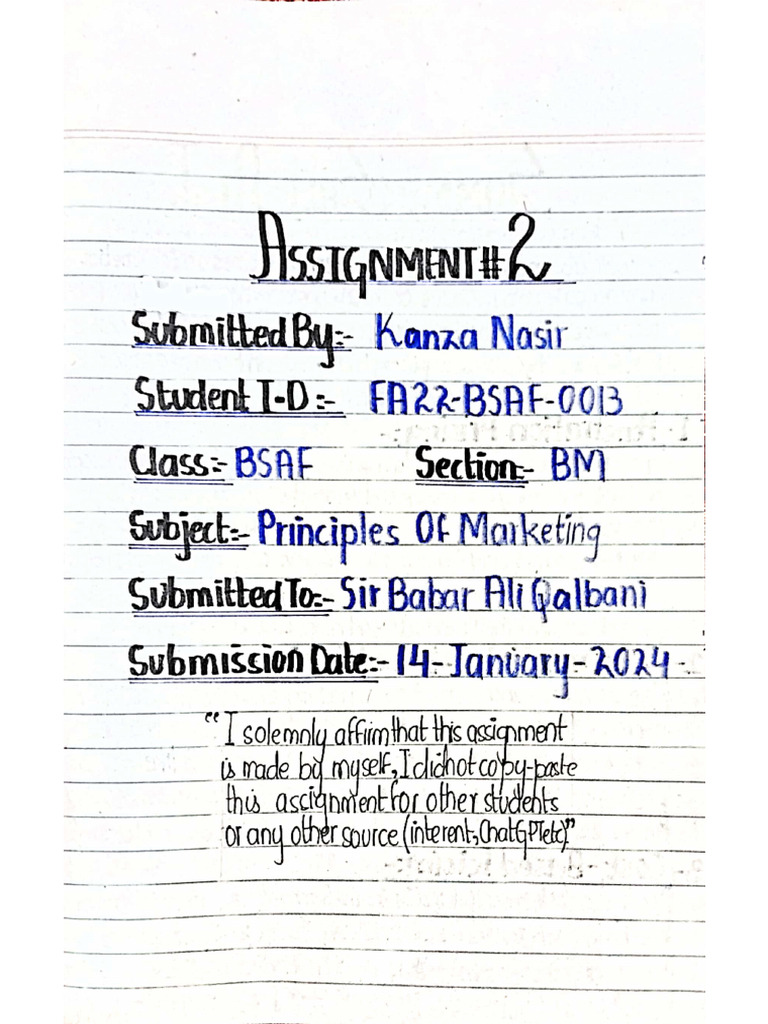 ASSIGNMENT#2
Submitted By:- Kanza Nasir
Student I-D:- FA22-BSAF-0013
Class:- BSAF Section:- BM
Subject:- Principles Of Marketing
Submitted To:- Sir Babar Ali Qalbani
Submission Date:- 14-January-2024
"I solemnly affirm that this assignment
is made by myself, I did not copy-paste
this assignment for other students
or any other source (interent, ChatGPT etc)."